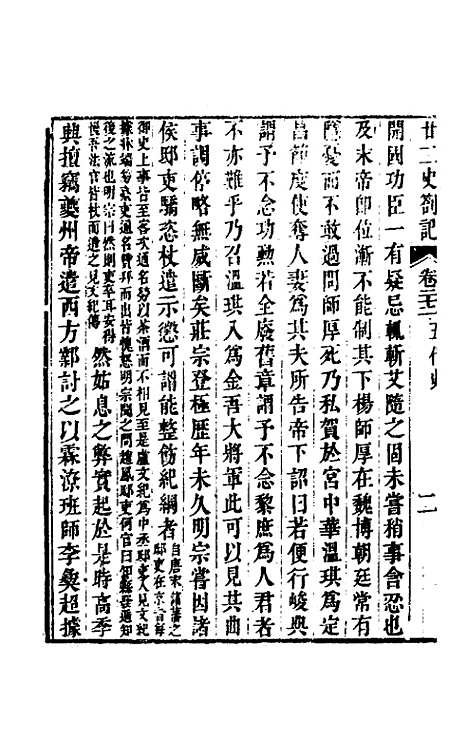 廿二史劄記　卷二十二　五代史　二
開國功臣一有疑忌輒斬艾隨之固未嘗稍事含忍也
及末帝即位漸不能制其下楊師厚在魏博朝廷常有
隱憂而不敢過問師厚死乃私賀於宮中華溫琪為定
昌節度使奪人妻為其夫所告帝下詔曰若便行峻典
謂予不念功勲若全廢舊章謂予不念黎庶為人君者
不亦難乎乃召溫琪入為金吾大將軍此可以見其曲
事調停略無威斷矣莊宗登極歷年未久明宗嘗因諸
侯邸吏驕恣杖遣示懲可謂能整飭紀綱者
自唐末藩鎮之
邸吏在京者每
御史上事皆至客次通名勞以茶酒而不相見至是盧文紀為中丞邸吏入見文紀
據牀端笏桑吏通名贊拜而出皆愧怒明宗聞之問趙鳳邸吏何官曰知縣發遞知
後之流也明宗曰然則吏卒耳安得
慢吾法官皆杖而遣之見文紀傳
然姑息之弊實起於是時高季
興擅竊夔州帝遣西方鄴討之以霖潦班師李彝超據